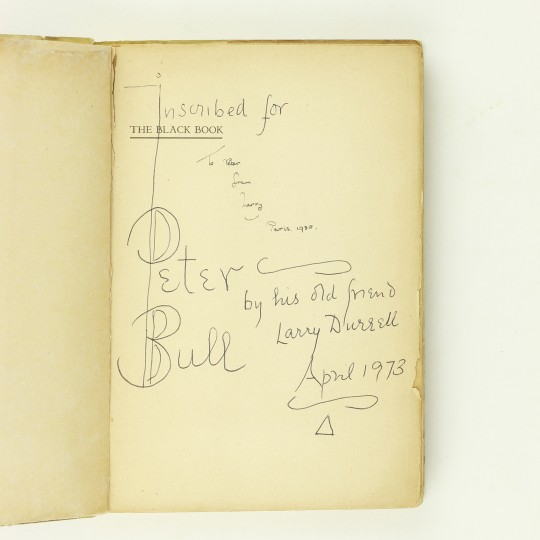 Inscribed for
THE BLACK BOOK
To Peter
from
Larry
Paris 1938.
Peter
by his old friend
Larry Durrell
Bull
April 1973